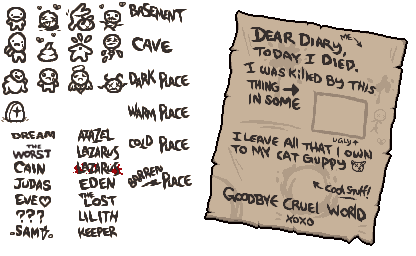 BASEMENT
CAVE
DARK PLACE
WARM PLACE
COLD PLACE
BARREN PLACE
DREAM
THE WORST
CAIN
JUDAS
EVE
???
SAMS
AZAZEL
LAZARUS
LAZARUS
EDEN
THE LOST
LILITH
KEEPER
DEAR DIARY,
ME
TODAY I DIED.
I WAS KILLED BY THIS
THING
IN SOME
UGLY
I LEAVE ALL THAT I OWN
TO MY CAT GUPPY
COOL STUFF!
GOODBYE CRUEL WORLD
XOXO